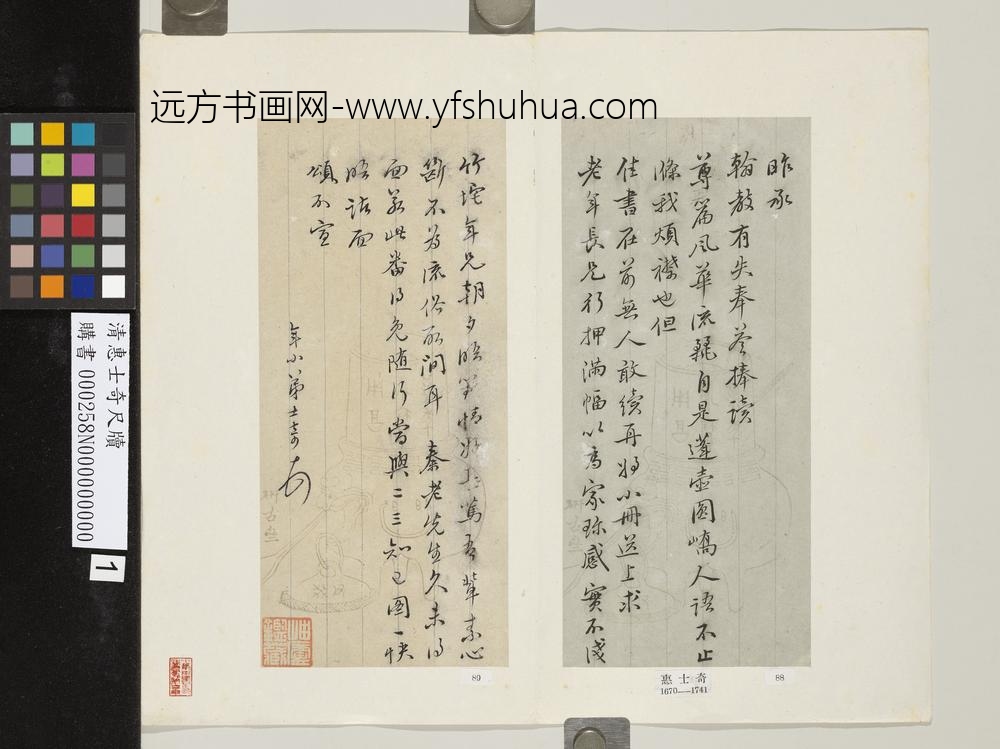 远方书画网-www.yfshuhua.com
昨承
翰教有失奉答捧读
尊篇风華流麗自是蓬壶圆嶠人语不止
滌我烦襟也但
佳書在前無人敢續再將小冊送上求
老年長兄行押满幅以為家珍感實不淺
竹垞年兄朝夕晤對情好
篤吾輩素心
斷不為流俗所间耳 秦老先生久未得
面若此番得免随行當與二三知己图一快
晤話面
頌不宣
年小弟士奇
惠士奇
1670—1741
88
89
清惠士奇尺牘
購書 000258N000000000
1